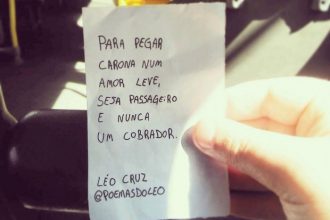 PARA PEGAR
CARONA NUM
AMOR LEVE,
SEJA PASSAGEIRO
E NUNCA
UM COBRADOR.
LÉO CRUZ
@POEMASDOLEO